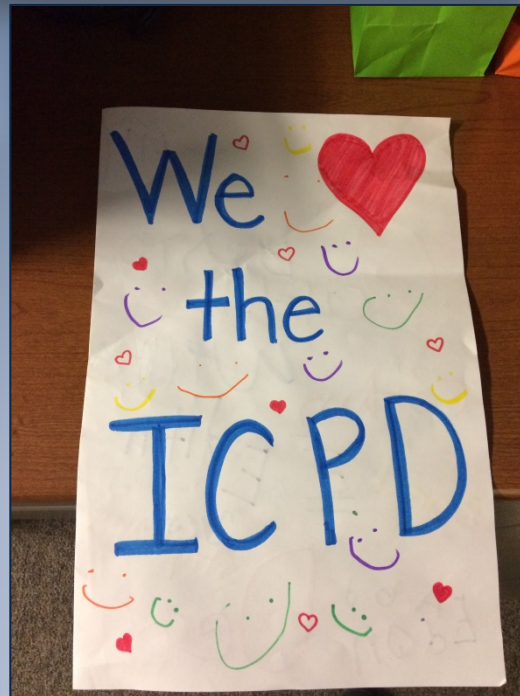 We ❤
the
ICPD